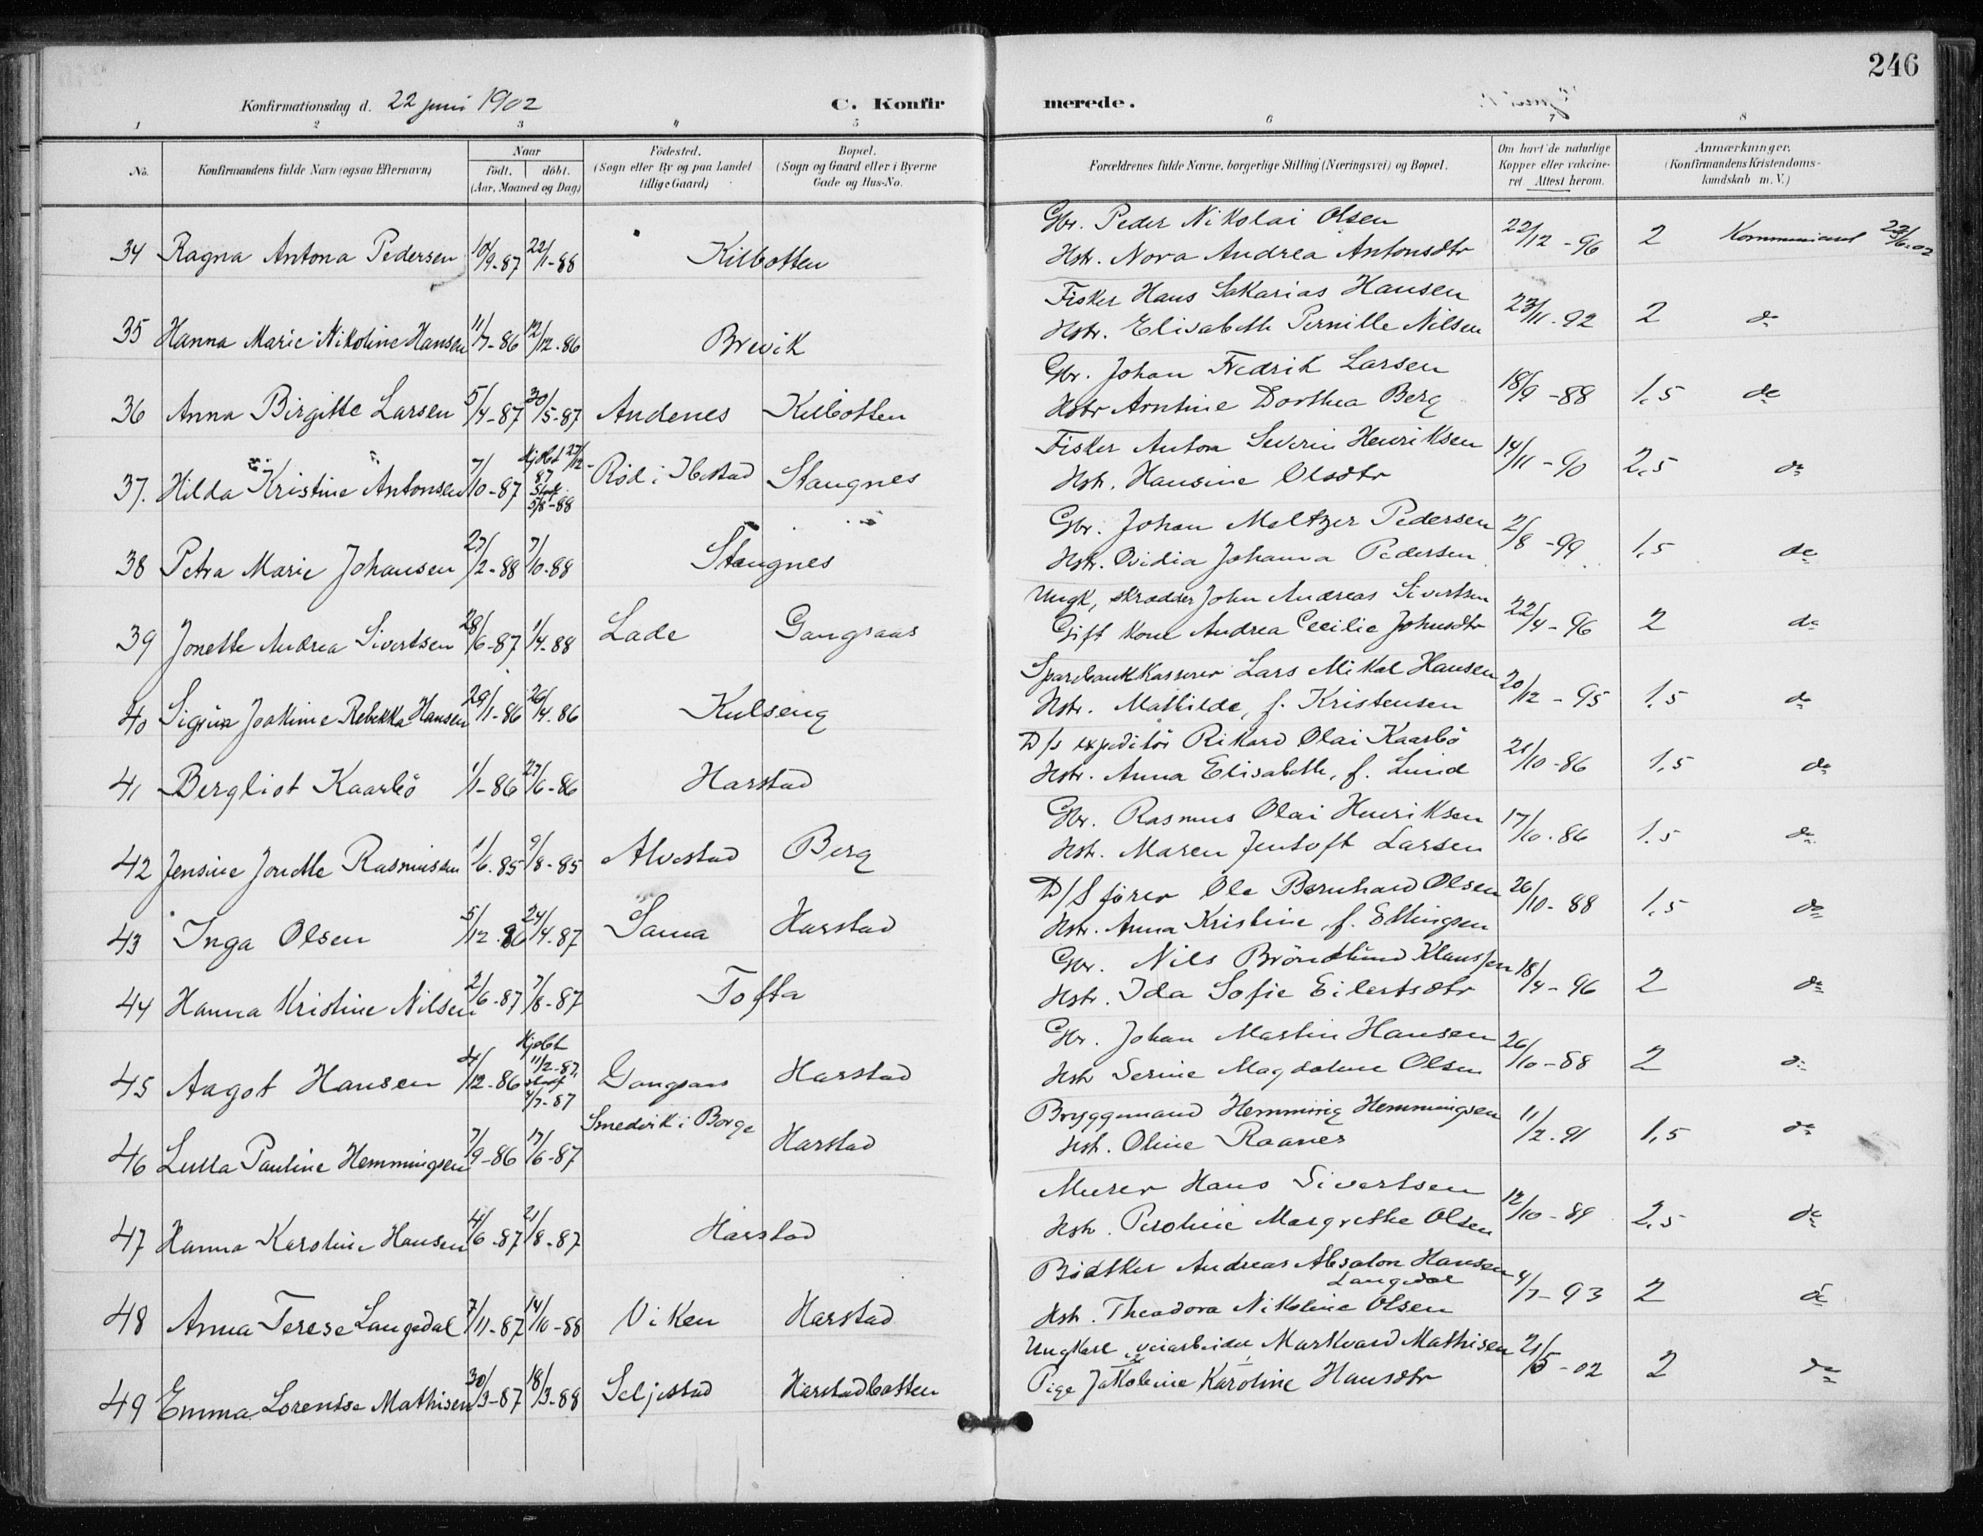 246
Konfirmationsdag d. 22 juni 1902 C. Konfir merede.
1 2 3 4 5 6 7 8
No. Konfirmandens fulde Navn (ogsaa Efternavn) Naar født. døbt. (Aar, Maaned og Dag) Fødested. (Sogn eller By og paa Landet tillige Gaard) Bopæl. (Sogn og Gaard eller i Byerne Gade og Hus-No. Forældrenes fulde Navne, borgerlige Stilling (Næringsvei) og Bopæl. Om havt de naturlige Kopper eller vakcineret. Attest herom. Anmærkninger. (Konfirmandens Kristendomskundskab m. V.)
Gbr. Peder Nikolai Olsen
34 Ragna Antona Pedersen 10/9-87 22/1-88 Kilbotten Hstr. Nora Andrea Antonsdtr 22/12-96 2 Kommuniceret 22/6.02
Fisker Hans Sakarias Hansen
35 Hanna Marie Nikoline Hansen 11/7-86 12/12-86 Brevik Hstr. Elisabeth Pernille Nilsen 23/11-92 2 do
Gbr. Johan Fredrik Larsen
36 Anna Birgitte Larsen 5/4-87 30/5-87 Andenes Kilbotten Hstr Arntine Dorthea Berg 18/9-88 1,5 do
Fisker Anton Severin Henriksen
37. Hilda Kristine Antonsen 7/10-87 Hjdbt 27/12-87 Stadf. 5/8-88 Rød i Ibestad Stangnes Hstr. Hansine Olsdtr 14/11-90 2,5 do
Gbr. Johan Meltzer Pedersen
38 Petra Marie Johansen 27/2-88 7/10-88 Stangnes Hstr. Ovidia Johanna Pedersen 2/8-99 1,5 do
Ungk, skrædder John Andreas Sivertsen
39 Jonette Andrea Sivertsen 28/6-87 1/4-88 Lade Gangsaas Gift Kone Andrea Cecilie Johnsdtr 22/4-96 2 do
Sparebankkasserer Lars Mikal Hansen
40 Joakime Rebekka Hansen 29/1-86 26/4.86 Kulseng Hstr. Mathilde, f. Kristensen 20/12-95 1,5 do
D/s expeditør Rikard Olai Kaarbø
41 Bergliot Kaarbø 1/1-86 27/6-86 Harstad Hstr. Anna Elisabeth, f. Lund 21/10-86 1,5 do
Gbr. Rasmus Olai Henriksen
42 Jensine Jonette Rasmussen 1/6.85 9/8-85 Alvestad Berg Hstr. Maren Jentoft Larsen 17/10.86 1.5 do
D/S fører Ole Bernhard Olsen
43 Inga Olsen 5/12.86 24/4.87 Sama Harstad Hstr. Anna Kristine, f. Ellingsen 26/10-88 1,5 do
Gbr. Nils Bröndlund Klaussen
44 Hanna Kristine Nilsen 2/6-87 7/8-87 Tofta Hstr. Ida Sofie Eilertsdtr 18/4-96 2 do
Gbr. Johan Martin Hansen
45 Aagot Hansen 4/12-86 Hjdbt 11/2-87, stadf 4/7-87 Gangsaas Harstad Hstr Serine Magdalene Olsen 26/10-88 2 do
Bryggemand Hemming Hemmingsen
46 Lulla Pauline Hemmingsen 7/9-86 17/6-87 Smedvik i Borge Harstad Hstr. Oline Raanes 11/2.91 1,5 do
Murer Hans Sivertsen
47 Hanna Karoline Hansen 4/6-87 21/8-87 Harstad Hstr. Peroline Margrethe Olsen 12/10-89 2,5 do
Bødtker Andreas Absalon Hansen Langedal
48 Anna Terese Langedal 7/11-87 14/10-88 Viken Harstad Hstr. Theodora Nikoline Olsen 4/7-93 2 do
Ungkarl, veiarbeider Markvard Mathisen
49 Emma Lorentse Mathisen 30/3-87 18/3-88 Seljestad Harstadbotten Pige Jakobine Karoline Hansdtr 21/5-02 2 do